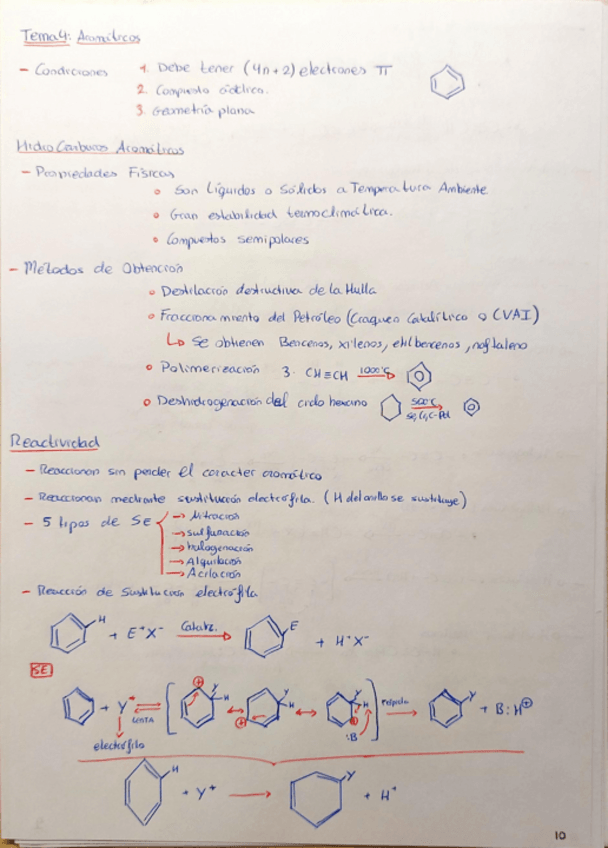 Tema 4: Aromáticos
- Condiciones 1. Debe tener (4n+2) electrones π
2. Compuesto cíclico.
3. Geometría plana
Hidrocarburos Aromáticos
- Propiedades Físicas
• Son Líquidos o Sólidos a Temperatura Ambiente.
• Gran estabilidad termoclimática.
• Compuestos semipolares
- Métodos de Obtención
• Destilación destructiva de la Hulla
• Fraccionamiento del Petróleo (Craqueo Catalítico o CVAI)
↳ Se obtienen Bencenos, xilenos, etilbencenos, naftaleno
• Polimerización 3. CH≡CH 1000ºC →
• Deshidrogenación del ciclo hexano 500ºC →
Reactividad
- Reaccionan sin perder el caracter aromático
- Reaccionan mediante sustitución electrófila. (H del anillo se sustituye)
- 5 tipos de SE → Nitración
→ sulfonación
→ halogenación
→ Alquilación
→ Acilación
- Reacción de Sustitución electrófila
H + E⁺X⁻ Cataliz. → E + H⁺X⁻
SE
+ Y⁺ ⇌ LENTA [⊕ Y H ↔ ⊕ Y H ↔ ⊕ Y H :B] Rápida → Y + B:H⊕
electrófilo
H + Y⁺ → Y + H⁺
10